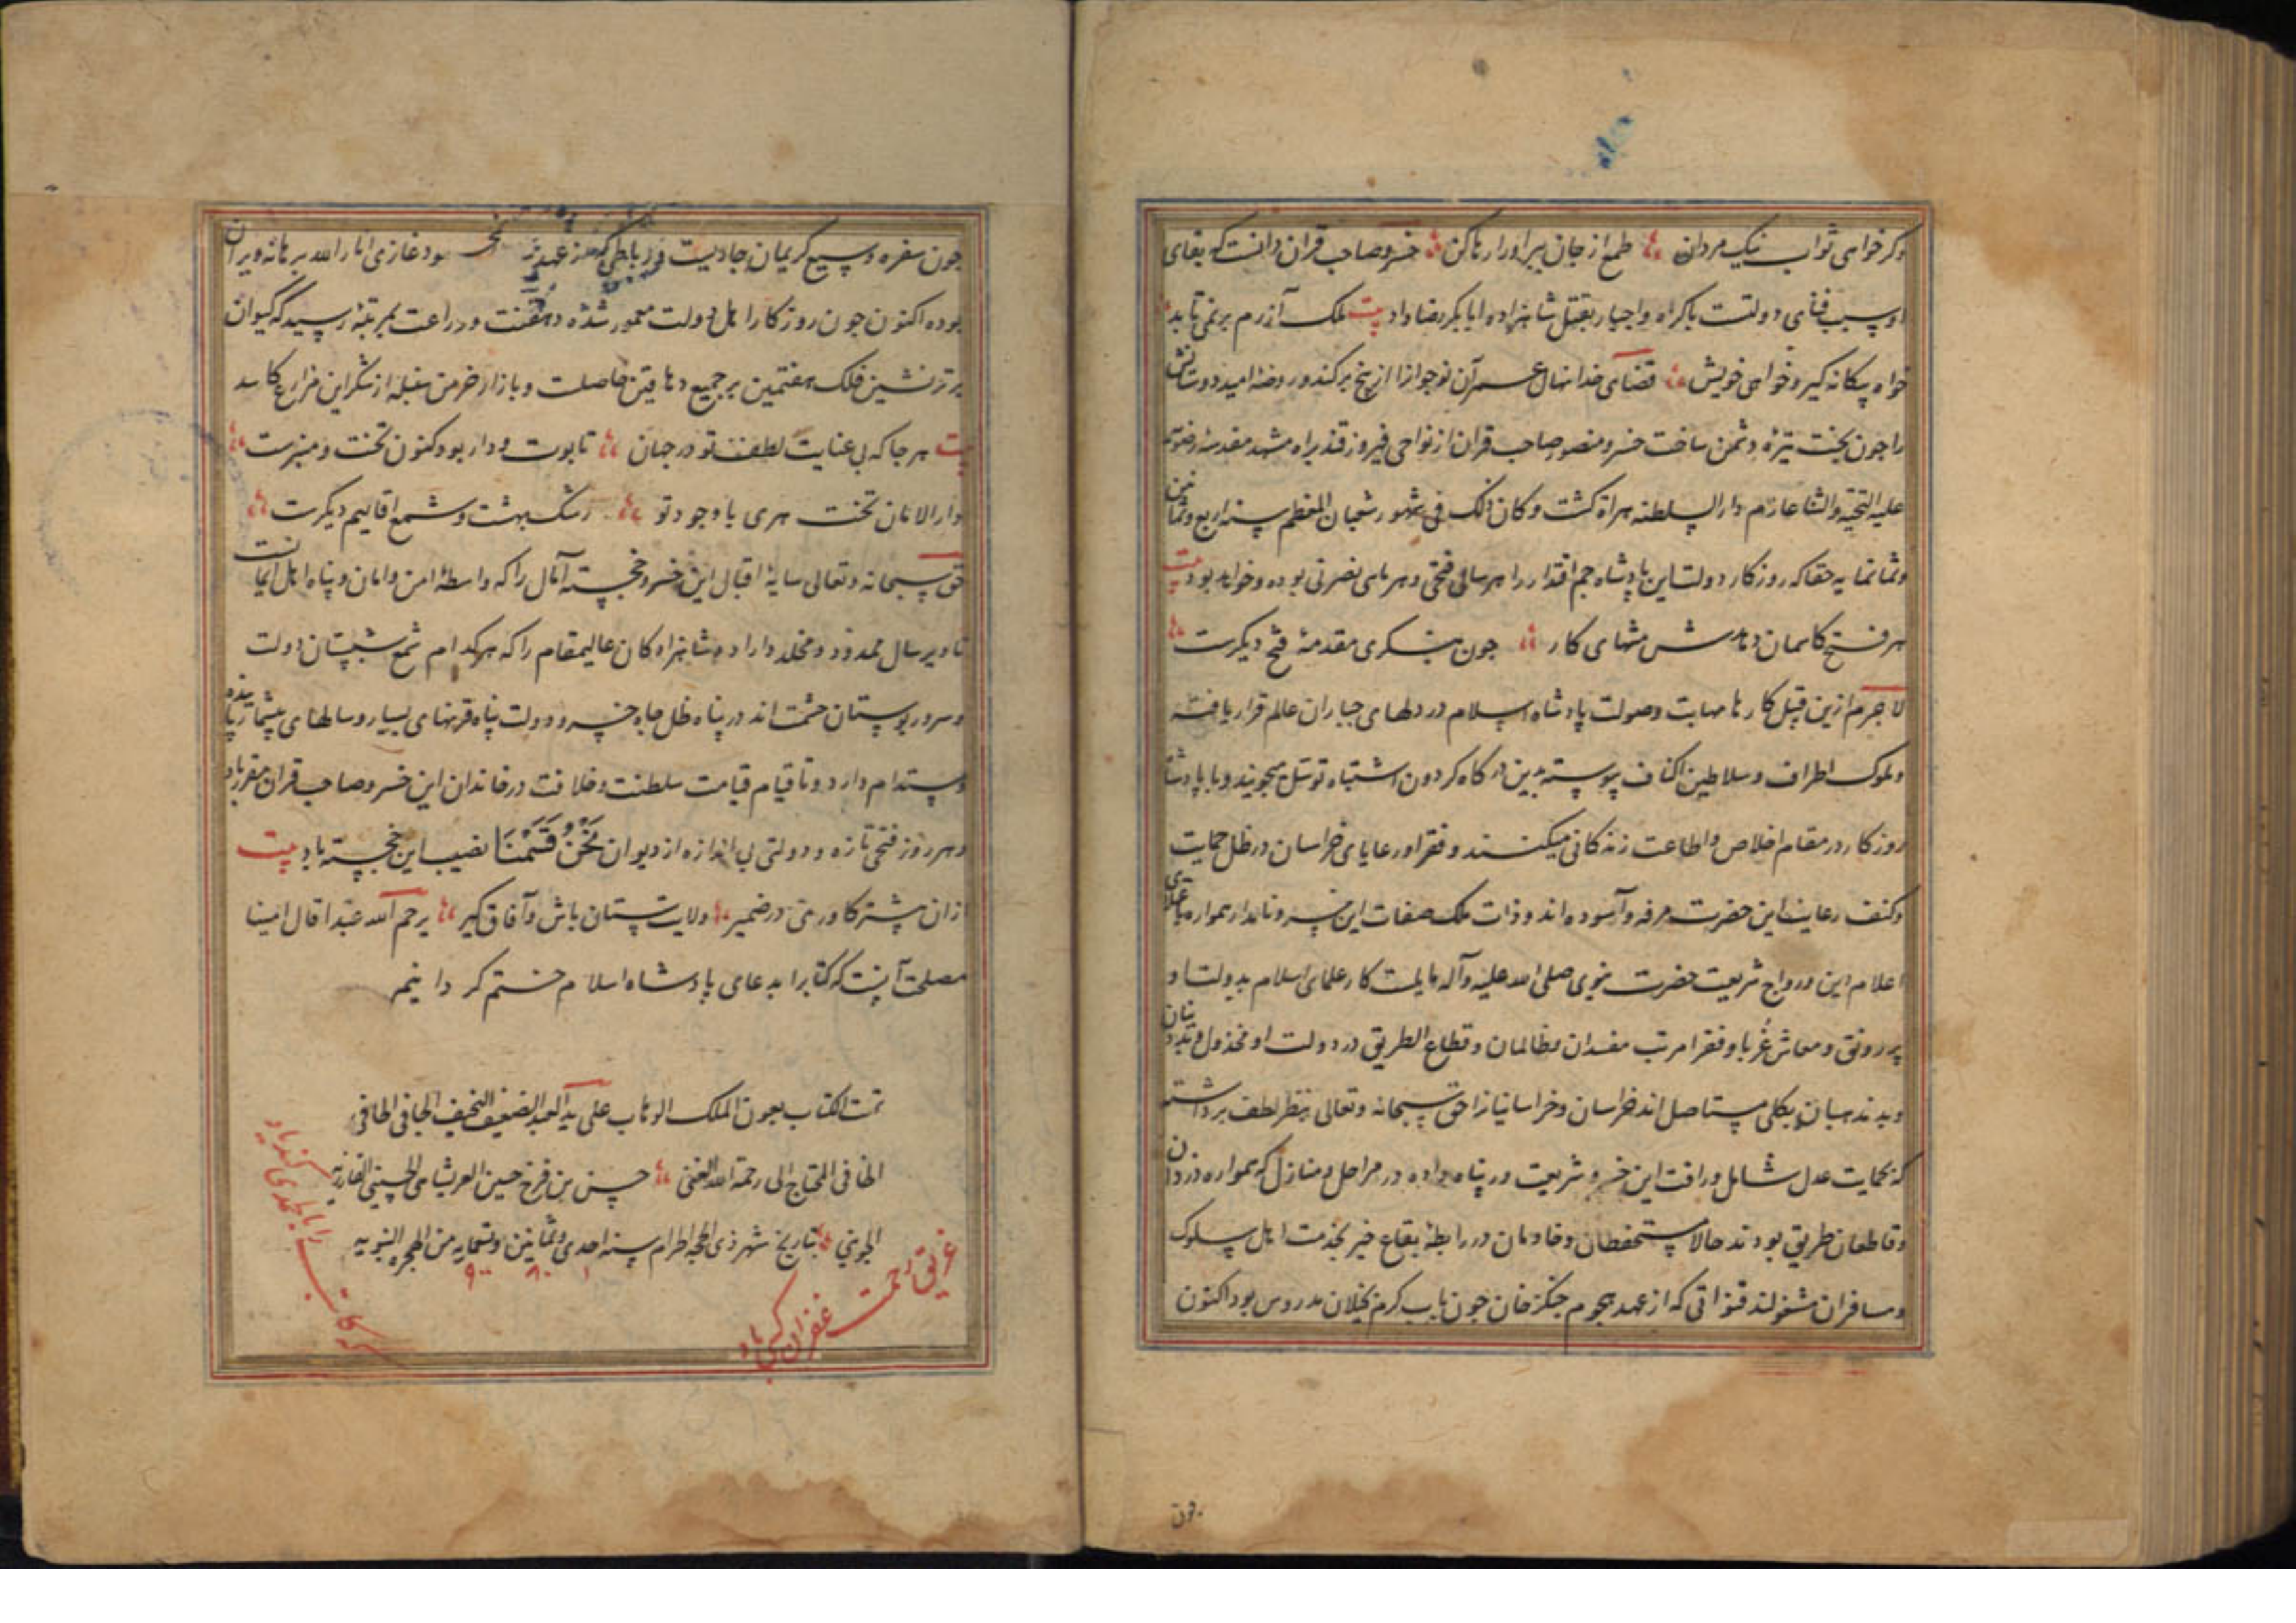 وکر خواهی ثواب نیک مردان طمع از جان پیر اورا رها کن خسرو صاحب قران دانست که بقای
او سبب فنای دولتست باکراه واجبار بقتل شاهزاده ابابکر رضا داد بیت ملک آزرم بر نمی تابد
خواه بیکانه کیر و خواهی خویش قضای خدا نهال عمر آن نوجوانرا از بیخ برکند و روضه امید دوستانش
را جون بخت تیره دشمن ساخت خسرو منصور صاحب قران از نواحی فیروزقند براه مشهد مقدسه رضویه
علیه التحیة والثنا عازم دار السلطنه هراة کشت وکان ذلک فی شهور شعبان المعظم سنه اربع وثمانین
وثمانمایه حقا که روزکار دولت این پادشاه جم اقتدار را هر سالی فتحی و هر ماهی نصرتی بوده و خواهد بود بیت
هر فتح کاسمان دهدش منتهای کار جون بنکری مقدمهٔ فتح دیکرست
لاجرم ازین قبل کارها مهابت وصولت پادشاه اسلام در دلهای جباران عالم قرار یافته
وملوک اطراف وسلاطین اکناف پیوسته بدین درکاه کردون اشتباه توسل میجویند و با پادشاه
روزکار در مقام اخلاص واطاعت زندکانی میکنند وفقرا ورعایای خراسان در ظل حمایت
وکنف رعایت این حضرت مرفه وآسوده اند وذات ملک صفات این خسرو نامدار همواره باعلای
اعلام دین ورواج شریعت حضرت نبوی صلی الله علیه وآله مایلست کار علمای اسلام بدولت او
پر رونق ومعاش غربا وفقرا مرتب مفسدان وظالمان وقطاع الطریق در دولت او مخذول وبددینان
وبدمذهبان بکلی مستاصل اند خراسان وخراسانیانرا حق سبحانه وتعالی بنظر لطف برداشته
که بحمایت عدل شامل ورافت این خسرو شریعت پناه داده در مراحل ومنازل که همواره دزدان
وقاطعان طریق بودند حالا مستحفظان وخادمان در رابطهٔ بقاع خیر بخدمت اهل سلوک
ومسافران مشغولند قنواتی که از عهد هجوم جنکز خان جون باب کرم بخیلان مدروس بود اکنون
جون
جون سفره وسیع کریمان جاریست و رباطی که از عهد بود غازی انار الله برهانه ویران
بوده اکنون جون روزکار اهل دولت معمور شده دهقنت وزراعت بمرتبهٔ رسید که کیوان
برتر نشین فلک هفتمین بر جمیع دهاقین حاصلت وبازار خرمن سنبله از شکر این مزارع کاسد
بیت هر جا که بی عنایت لطف تو در جهان تابوت ودار بود کنون تخت ومنبرست
دار الامان تخت هری با وجود تو رشک بهشت وشمع اقالیم دیکرست
حق سبحانه وتعالی سایهٔ اقبال این خسرو خجسته آمال را که واسطهٔ امن وامان وپناه اهل ایمانست
تا دیر سال ممدود ومخلد داراد وشاهزاده کان عالیمقام را که هر کدام شمع شبستان دولت
وسرو بوستان حشمت اند در پناه ظل جاه خسرو دولت پناه قرنهای بسیار وسالهای بیشمار پاینده
ومستدام دارد وتا قیام قیامت سلطنت وخلافت در خاندان این خسرو صاحب قران مقرر باد
وهر روز فتحی تازه ودولتی بی اندازه از دیوان نَحْنُ قَسَمْنَا نصیب این خجسته باد بیت
ازان بیشتر کاوری در ضمیر ولایت ستان باش وآفاق کیر یرحم الله عبدا قال امینا
مصلحت آنست که کتابرا بدعای پادشاه اسلام ختم کردانیم
تمت الکتاب بعون الملک الوهاب علی ید العبد الضعیف النحیف الجانی الجافی
الخافی المحتاج الی رحمة الله الغنی حسن بن فرخ حسین العربشاهی الحسینی
الجوینی بتاریخ شهر ذی الحجه الحرام سنه احدی وثمانین وتسعمایه من الهجره النبویه
۱ ۸۰ ۹۰۰
غریق رحمت غفران کسی باد
که کاتب را بالحمدی کند یاد